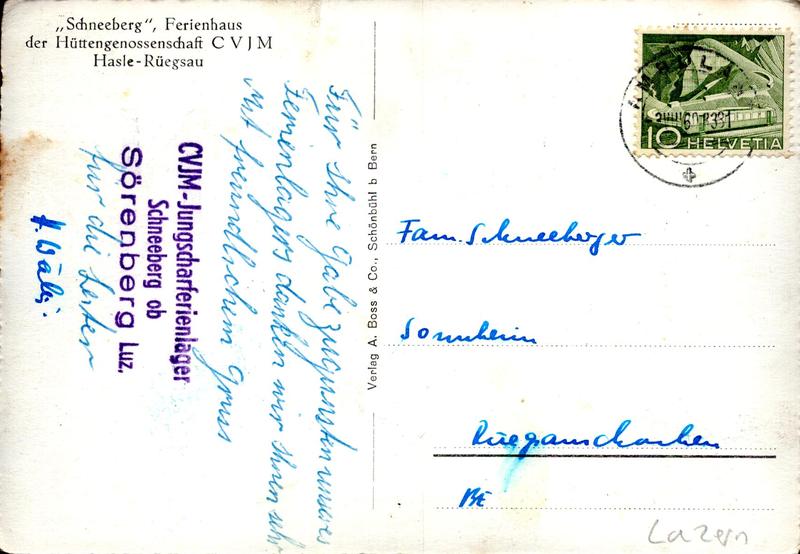 „Schneeberg", Ferienhaus
der Hüttengenossenschaft CVJM
Hasle-Rüegsau
Für Ihre Gabe zugunsten unseres
Ferienlagers danken wir Ihnen sehr
Mit freundlichem Gruss
CVJM-Jungscharferienlager
Schneeberg ob
Sörenberg Luz.
für die Leiter
Verlag A. Boss & Co., Schönbühl b Bern
10 HELVETIA
Fam. Schneeberger
Sonnheim
Rüegsauschachen
BE
Luzern